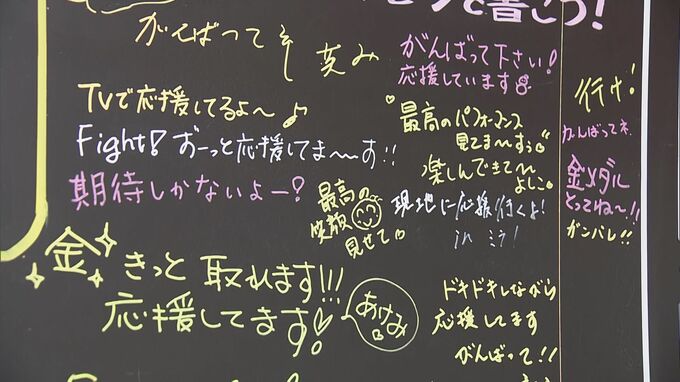 で書こう!
がんばってネ
笑み
がんばって下さい!
応援しています
TVで応援してるよ〜♪
Fight! ずーっと応援してま〜す!!
期待しかないよー?
最高のパフォーマンス
見てま〜す
楽しんできて〜
よしこ
最高の
笑顔
見せて
現地に応援行くよ!
in ミラ!
金 きっと 取れます!!!
応援してます!
あけみ
ドキドキしながら
応援してます
がんばって!!
行け!
がんばってネ
金メダル
とってね〜!!
ガンバレ!!